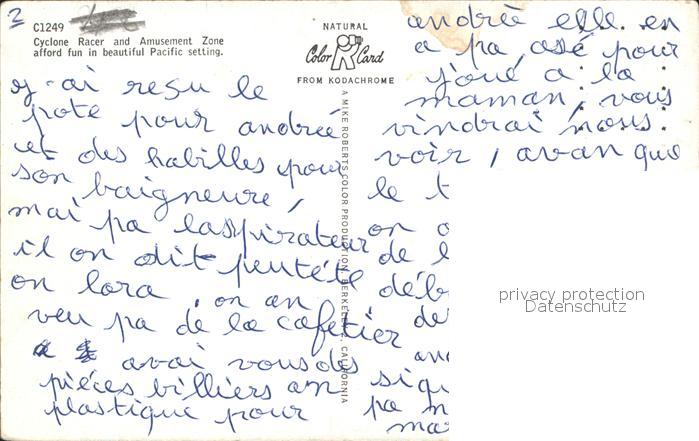 2
C1249
Cyclone Racer and Amusement Zone
afford fun in beautiful Pacific setting.
NATURAL
Color Card
FROM KODACHROME
A MIKE ROBERTS COLOR PRODUCTION, BERKELEY 2, CALIFORNIA
y-ai resu le
pote pour andreé
et des habilles pour
son baigneuré,
mai pa laspirateur
il on dit peutété
on lora, on an
veu pa de la cafetier
avai vous des
piéces billiers an
plastique pour
andrée elle en
a pa asé pour
joué a la
maman, vous
vindrai nous
voir, avan que
le t
on a
de l
déb
de
an
siqu
pa n
ma
privacy protection
Datenschutz